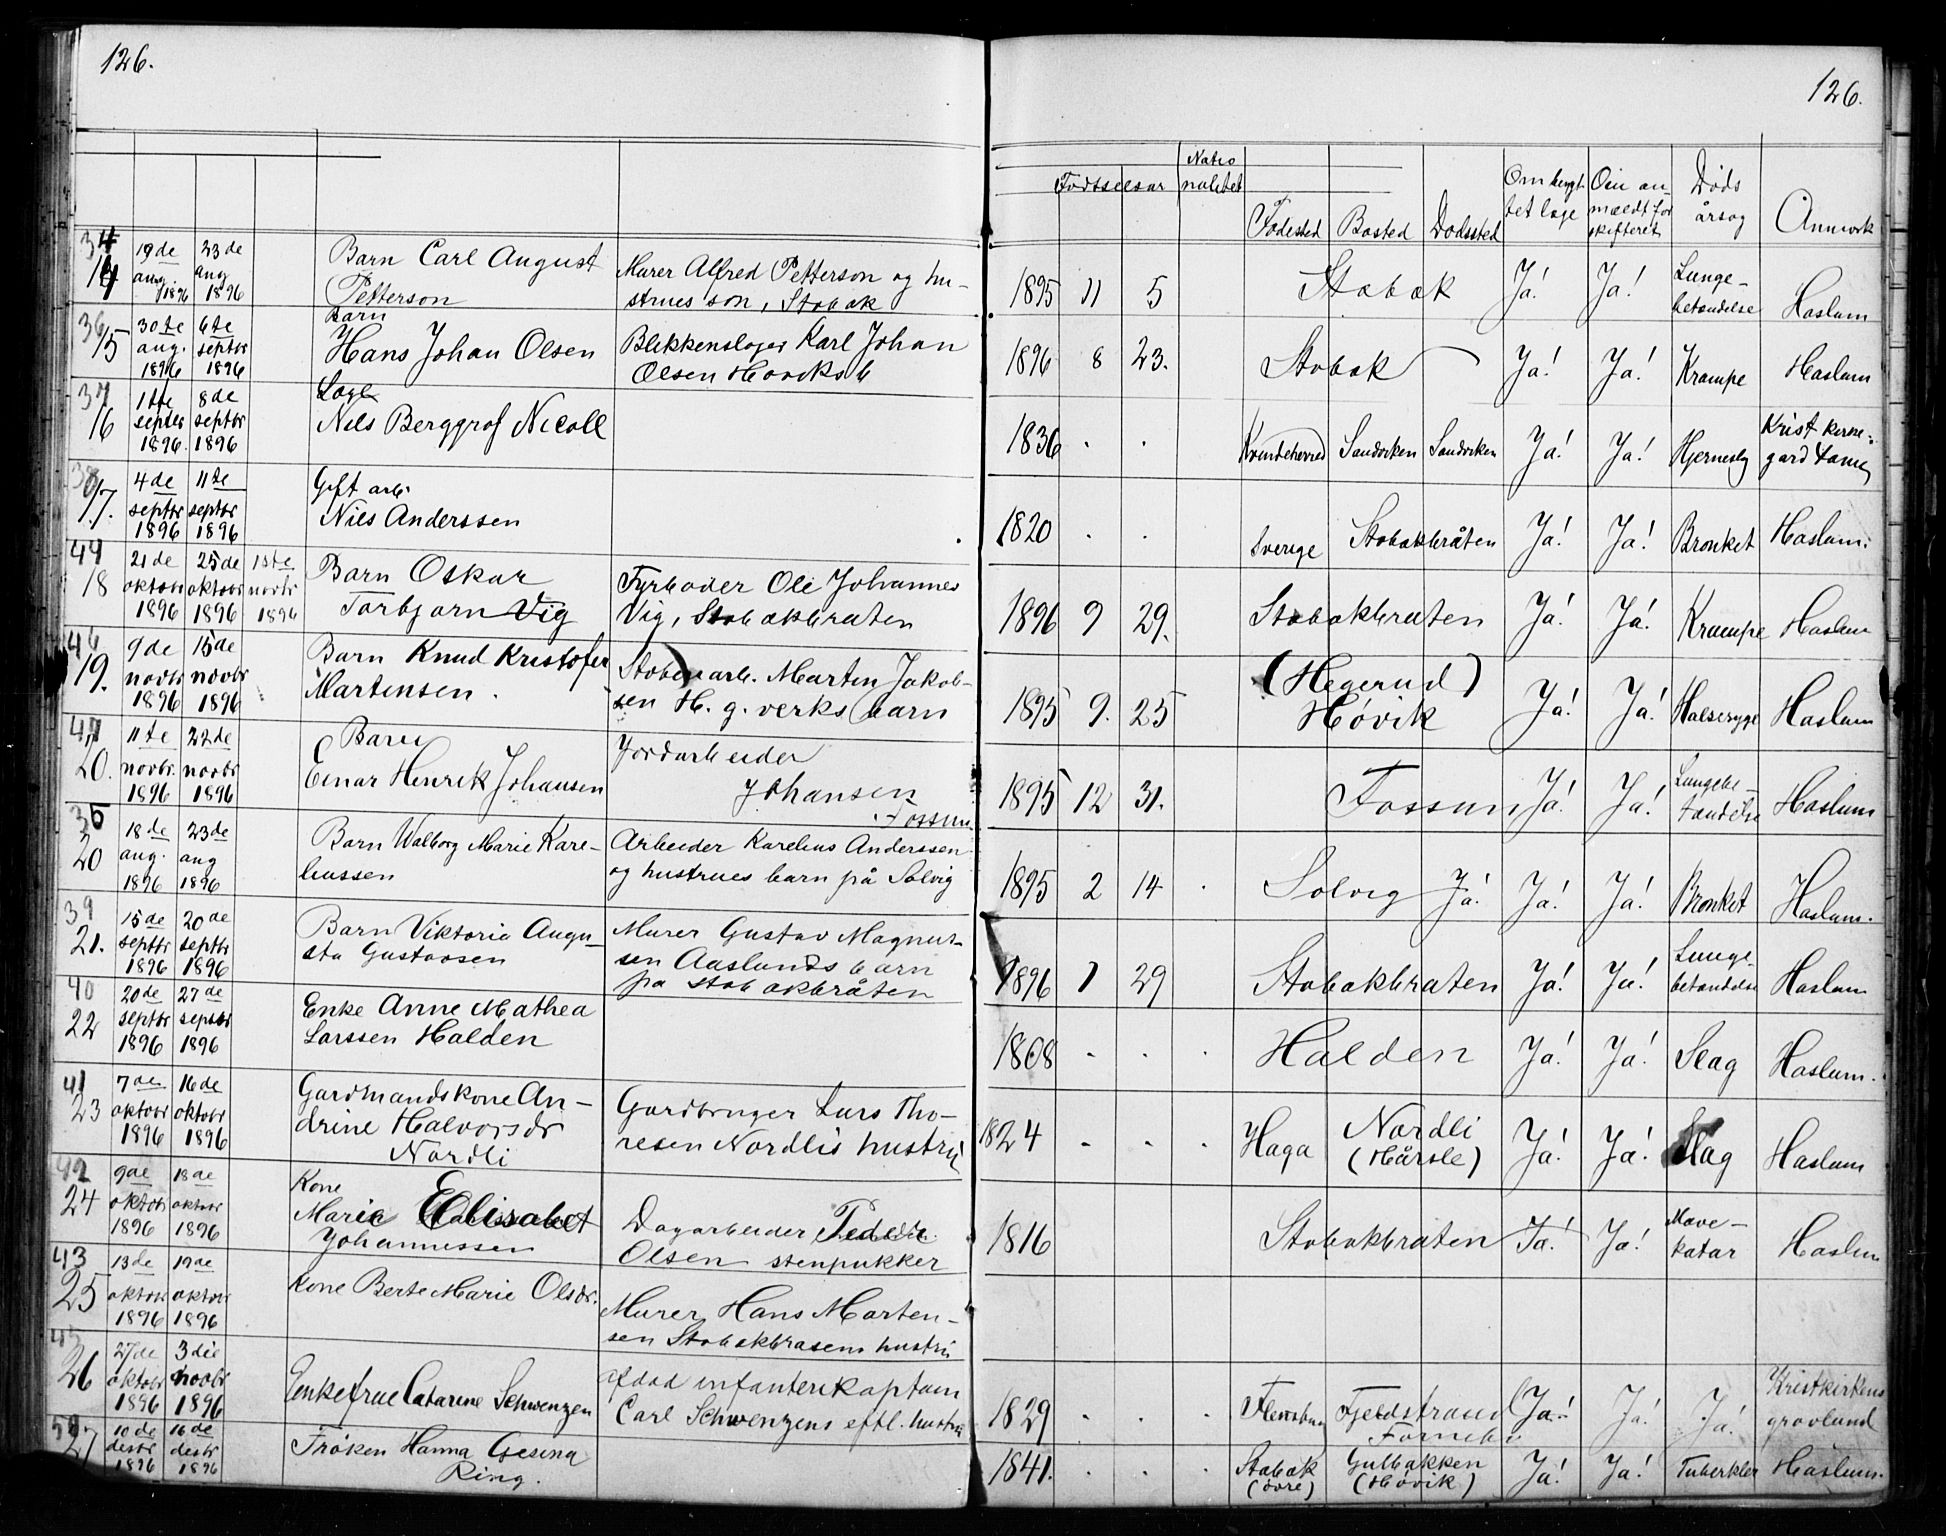 126.
34
14
19de
aug
1896
23de
aug
1896
Barn Carl August
Petterson
Murer Alfred Petterson og hu-
strues son, Stabæk
36
15
30te
aug.
1896
6te
septbr
1896
Barn
Hans Johan Olsen
Blikkenslager Karl Johan
Olsen Høviks b
37
16
1ste
septbr
1896.
8de
septbr
1896
Læge
Nils Berggraf Nicoll
38
17.
4de
septbr
1896
11te
septbr
1896
Gift arb.
Nils Anderssen
44
18
21de
oktobr
1896
25de
oktobr
1896
1ste
novbr
1896
Barn Oskar
Torbjørn Vig
Fyrbøder Ole Johannes
Vig, Stabækbraten
46
19.
9de
novbr
1896
15de
novbr
1896
Barn Knud Kristofer
Martensen.
arb. Marten Jakob-
sen H. g. verks barn
47
20.
11te
novbr.
1896
22de
novbr
1896
Barn
Einar Henrik Johansen
Jordarbeider
Johansen
Fossum
35
20
18de
aug.
1896
23de
aug
1896
Barn Walborg Marie Kare-
liussen
Arbeider Karelius Anderssen
og hustrues barn på Solvig
39
21.
15de
septbr
1896
20de
septbr
1896
Barn Viktoria Augu-
sta Gustavsen
Murer Gustav Magnus-
sen Aaslunds barn
på Stabækbråten
40
22
20de
septbr
1896
27de
septbr
1896
Enke Anne Mathea
Larssen Halden
41
23
7de
oktobr
1896
16de
oktobr
1896
Gardmandskone An-
drine Halvorsdr
Nordli
Gardbruger Lars Tho-
resen Nordlis hustru
42
24
9de
oktobr
1896
18de
oktobr
1896
Kone
Marie Elisabet
Johannessen
Dagarbeider
Olsen stenpukker
43
25
13de
oktobr
1896
19de
oktobr
1896
Kone Berte Marie Olsdr.
Murer Hans Marten-
sen Stabækbrasens hustru
45
26
27de
oktobr
1896
3die
novbr
1896
Enkefrue Catarine Schwenzen
afdød infanterikaptain
Carl Schwenzens eftl. hustru
27
10de
desbr
1896
16de
desbr
1896
Frøken Hanna Gesina
Ring.
126.
Fødselsaar
Natio
nalitet
Fødested
Bosted
Dødssted
Om bragt
tet læge
Om an-
mældt for
skifteret
Døds
årsag
Anmærk
1895 11 5 Stabæk Ja! Ja! Lunge-
betændelse Haslum
1896 8 23. Stabæk Ja! Ja! Krampe Haslum
1836 . . Kvindeherred Sandviken Sandviken Ja! Ja! Hjerneslg Krist kirke-
gård
1820 . . Sverige Stabækbråten Ja! Ja! Bronket Haslum.
1896 9 29. Stabækbraten Ja! Ja! Krampe Haslum
1895 9. 25 (Hegerud)
Høvik Ja! Ja! Halsesyge Haslum
1895 12 31. Fossum Ja! Ja! Lungebe-
tændelse Haslum
1895 2 14 . Solvig Ja! Ja! Ja! Bronket Haslum.
1896 1 29 Stabækbraten Ja! Ja! Lunge-
betændelse Haslum
1808 . . . Halden Ja! Ja! Slag Haslum.
1824 . . . Haga Nordli
(Hårsle) Ja! Ja! Slag Haslum
1816 Stabækbraten Ja! Ja! Mave-
katar Haslum
1829 . . . Flensburg Fjeldstrand
Fornebo Ja! Ja! Ja! Kristkirkens
gravlund
1841. . . . Stabæk
(øvre) Gulbakken
(Høvik) Ja! Ja! Tuberkler Haslum.